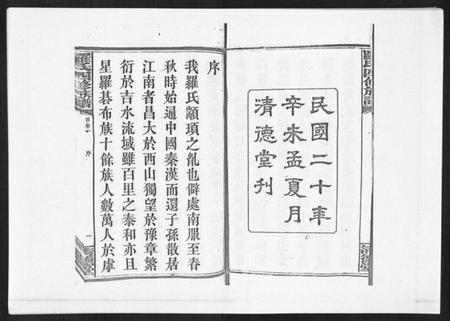 民國二十年
辛未孟夏月
清德堂刊
羅氏四修族譜
序
我羅氏顓頊之胤也僻處南服至春
秋時始通中國秦漢而還子孫散居
江南者昌大於西山獨望於豫章繁
衍於吉水流域雖百里之泰和亦且
星羅碁布族十餘族人數萬人於虖
羅氏四修族譜
序
一